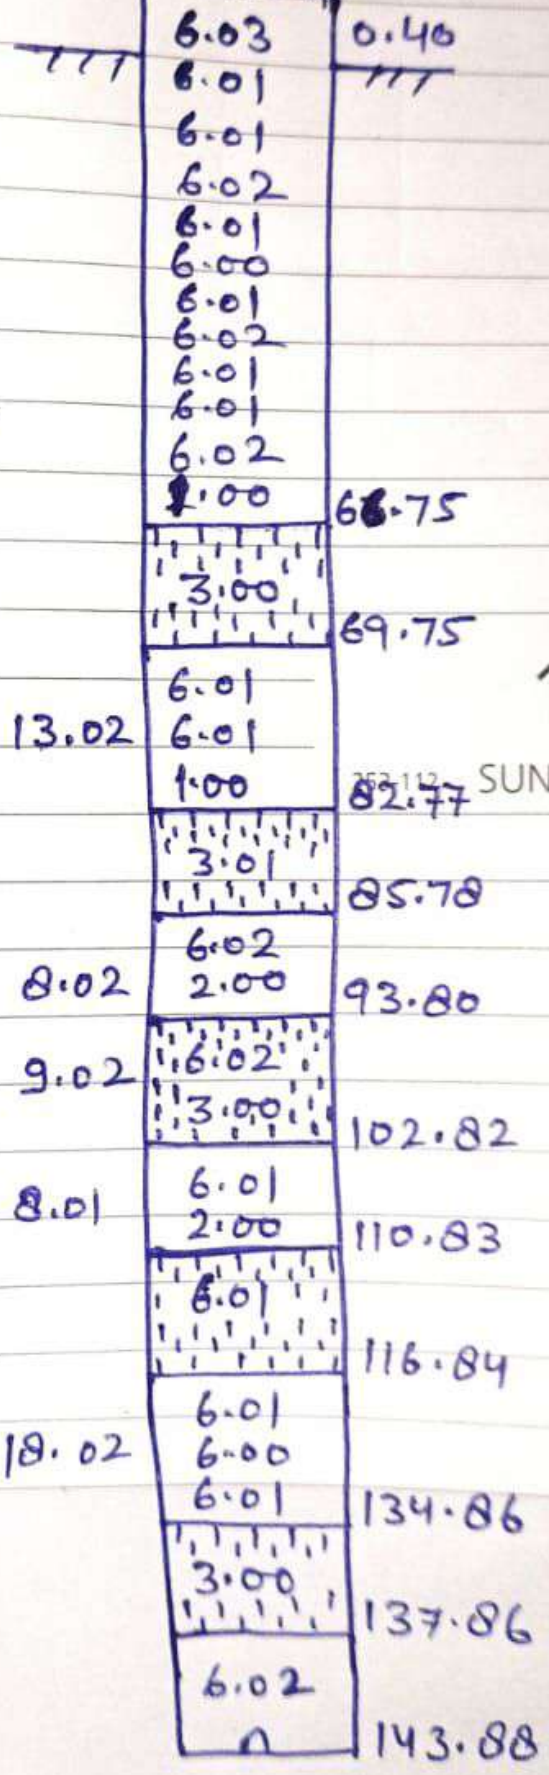 6.03 0.40
6.01
6.01
6.02
6.01
6.00
6.01
6.02
6.01
6.01
6.02
1.00 66.75
3.00
69.75
6.01
13.02 6.01
1.00 82.77 SUN
3.01
85.78
6.02
8.02 2.00 93.80
9.02 6.02
3.00
102.82
6.01
8.01 2.00 110.83
6.01
116.84
6.01
18.02 6.00
6.01 134.86
3.00
137.86
6.02
143.88